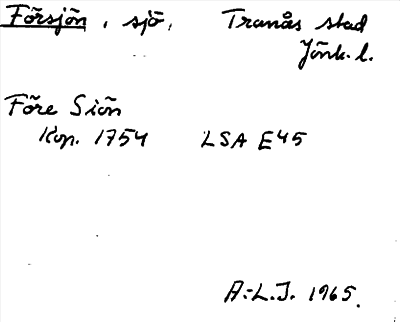 Försjön, sjö, Tranås stad
Jönk. l.
Före Siön
Kop. 1754 LSA E45
A.-L.J. 1965.